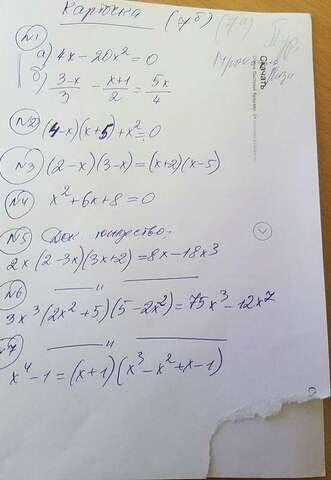 Карточка (7б) (7а)
№1
а) 4x - 20x² = 0
б) (3-x)/3 - (x+1)/2 = 5x/4
№2 (4-x)(x+5)+x²=0
№3 (2-x)(3-x)=(x+2)(x-5)
№4 x²+6x+8=0
№5 Док тождество.
2x(2-3x)(3x+2)=8x-18x³
№6 —— " ——
3x³(2x²+5)(5-2x²)=75x³-12x⁷
№7 —— " ——
x⁴-1=(x+1)(x³-x²+x-1)
Скачать